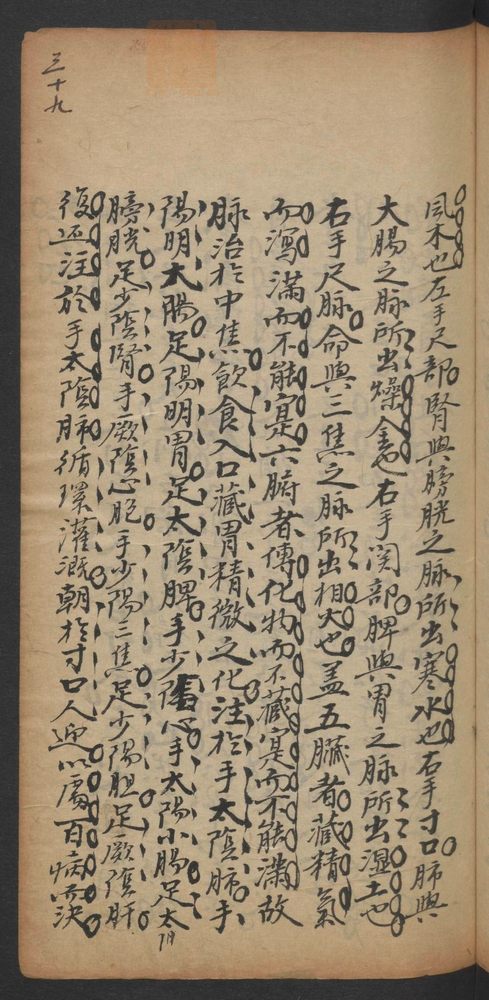 三十九
風木也左手尺部腎與膀胱之脉所出寒水也右手寸口肺與
大腸之脉所出燥金也右手関部脾與胃之脉所出湿土也
右手尺脉命與三焦之脉所出相火也盖五臟者藏精氣
而瀉滿而不能寔六腑者傳化物而不藏寔而不能滿故
脉治於中焦飲食入口藏胃精微之化注於手太陰肺手
陽明大腸足陽明胃足太陰脾手少陰心手太陽小腸足太陽
膀胱足少陰腎手厥陰心胞手少陽三焦足少陽胆足厥陰肝
復还注於手太陰肺循環灌溉朝於寸口人迎以處百病而决